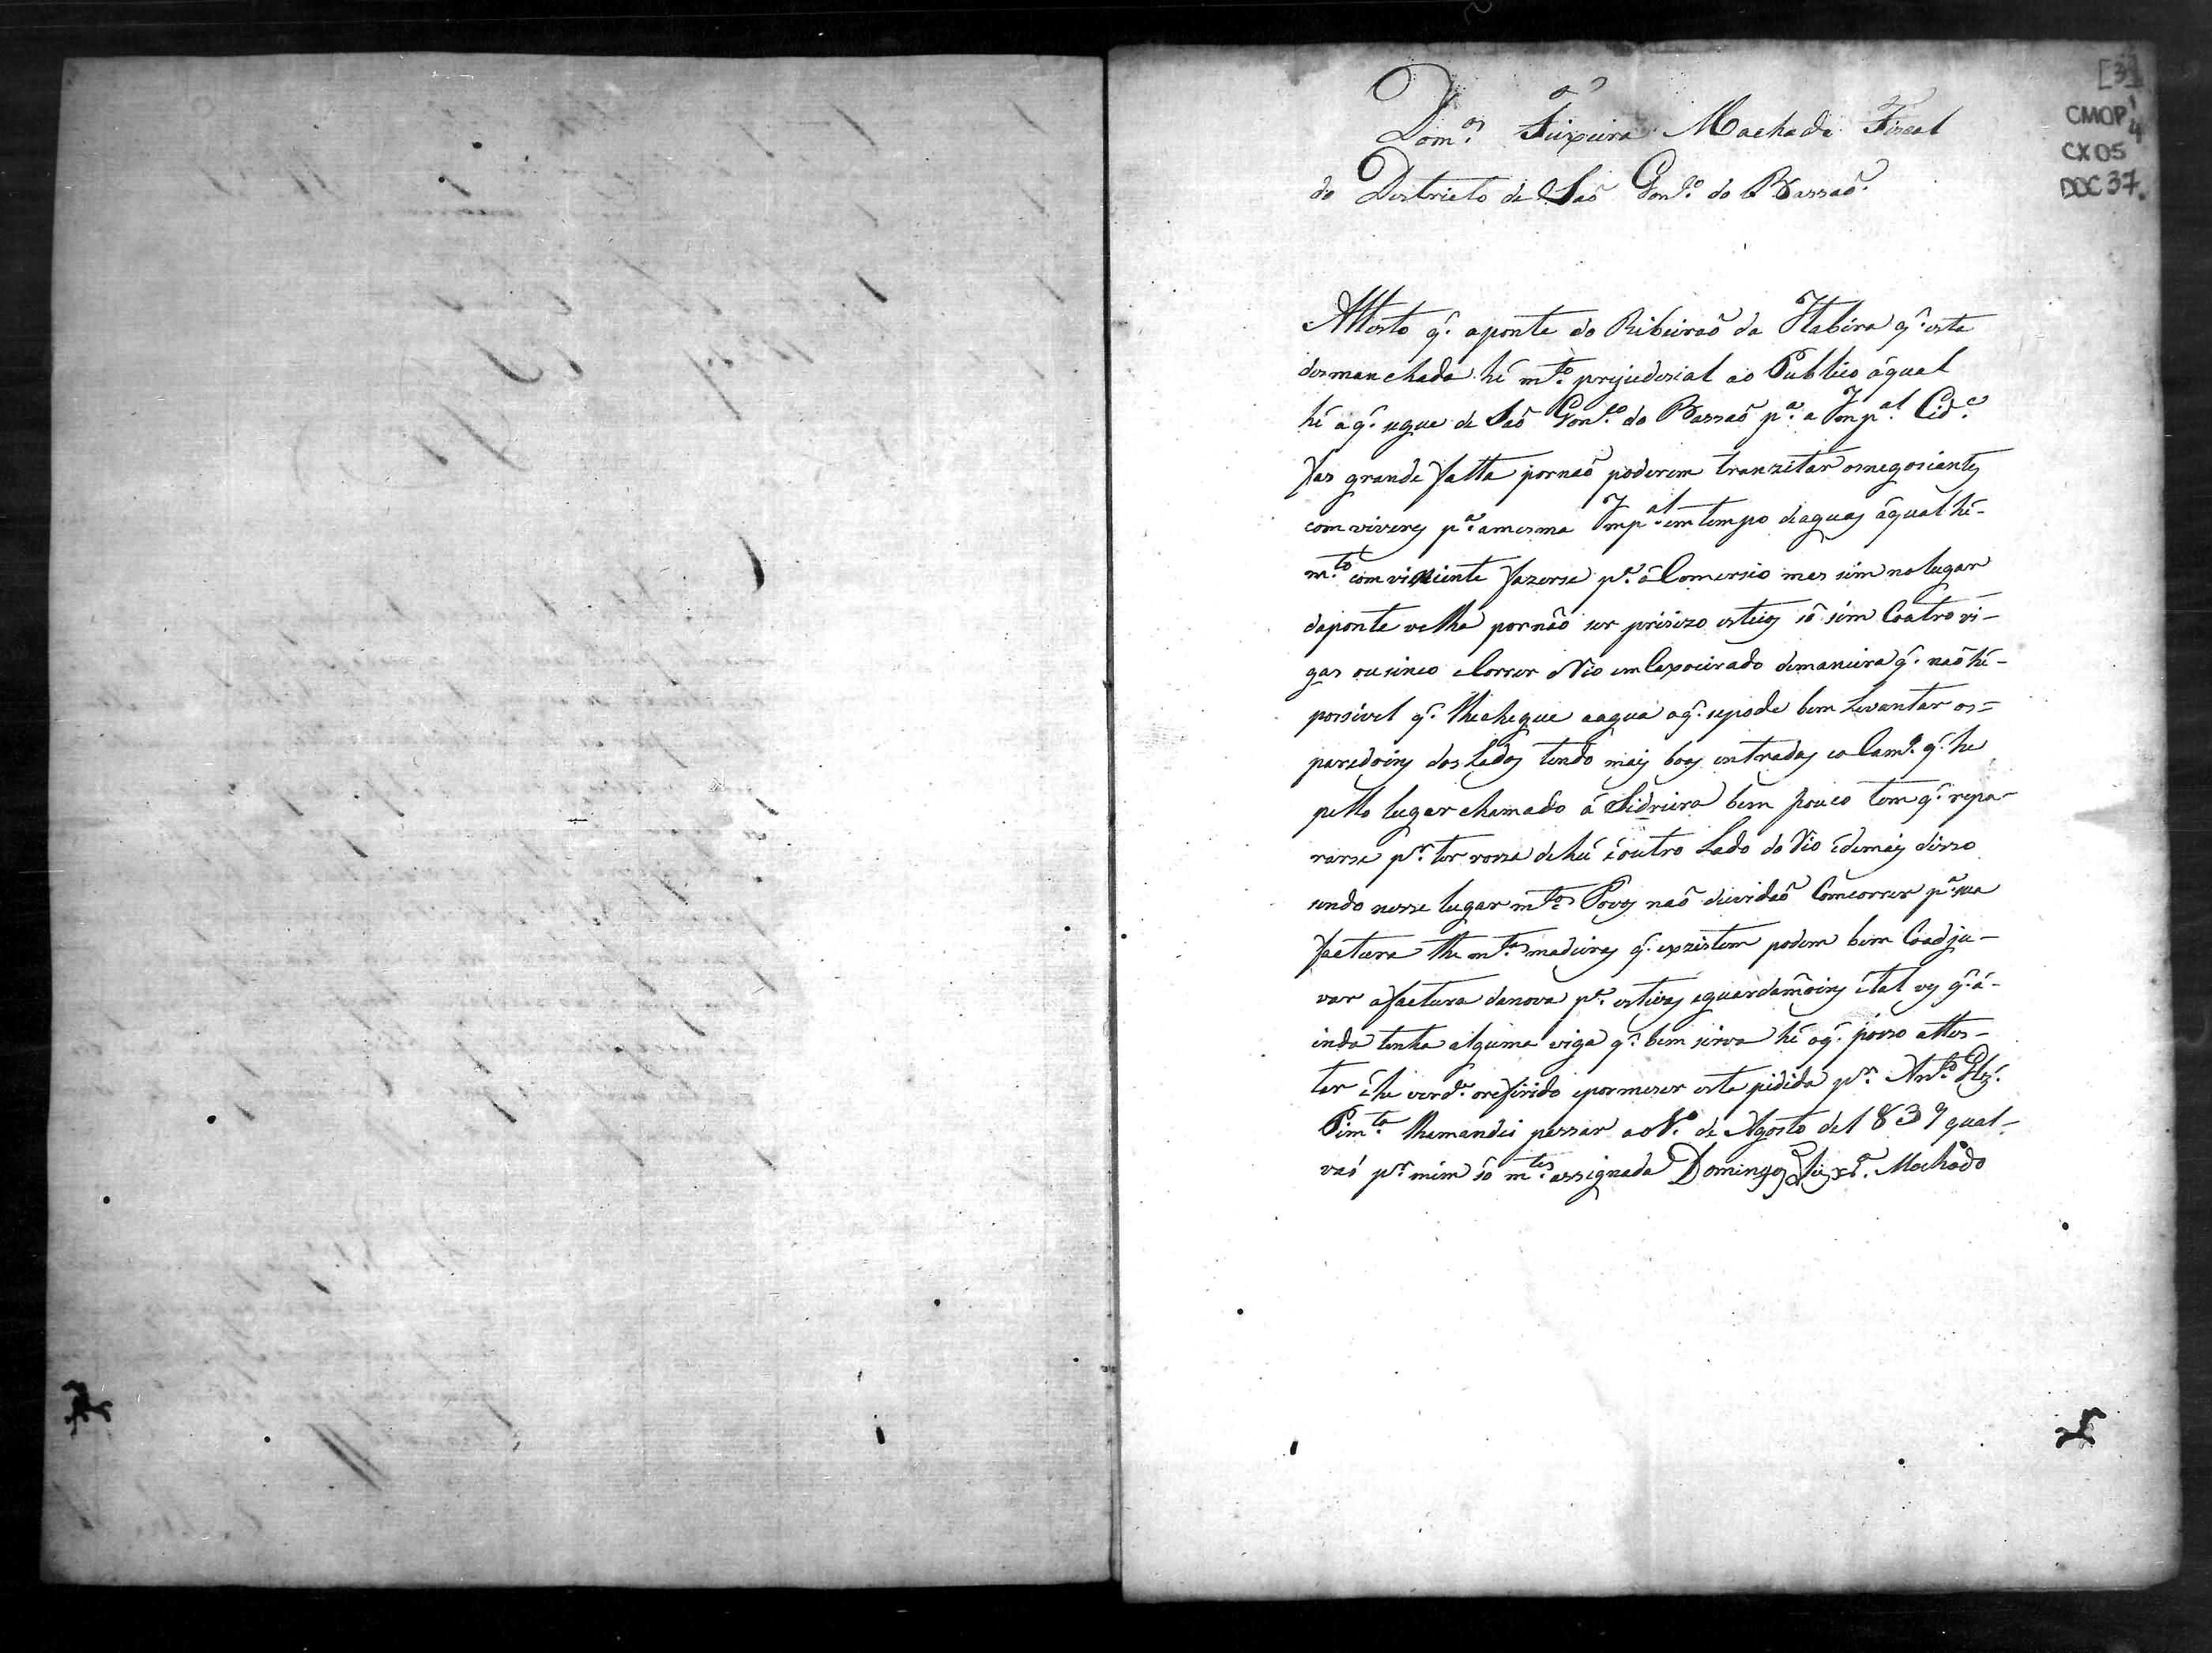 [3]
CMOP 1/4
CX 05
DOC 37.
Dom.os Teixeira Machado Fiscal
do Destricto de Saõ Gon.lo do Bassaõ.
Attesto q.' aponte do Ribeiraõ da Itabira q.' esta
desmanchada hé m.to prejudesial ao Publico áqual
hé áq.' segue de Saõ Gon.lo do Bassaõ p.a a Imp.al Cid.e
fas grande falta pornaõ poderem tranzitar osnegosiantes
com viveres p.a amesma Imp.al em tempo deaguas áqual hé-
m.to com viniente fazerse p.a ó Comersio mas sim no lugar
daponte velha pornão ser prisizo esteios só sim Coatro vi-
gas ou sinco e Correr o Rio em Caxoeirado demaneira q.' naõ hé-
possivel q.' lhechegue aagua oq.' sepode bem Levantar os=
paredoins dos Lados tendo mais boas entradas eo Cam.o q.' he
pello lugar chamado á Sidreira bem pouco tem q.' repa-
rarse p.r ter rossa dehú éoutro Lado do Rio édemais disso
sendo nesse lugar m.tos Povos naõ duvidaõ Comcorrer p.a sua
factura the m.tas madeiras q.' exzistem podem bem Coadju-
var afactura danova p.a estivas eguardamoins étal ves q.' á-
inda tenha alguma viga q.' bem sirva hé oq.' posso attes-
tar éhe verd.e orefirido epormeser esta pidida p.r Ant.o
Pim.ta lhemandei passar ao 1.o de Agosto de 1839 qual-
vaé p.r mim só m.te assignada Domingos Teix.ra Machado